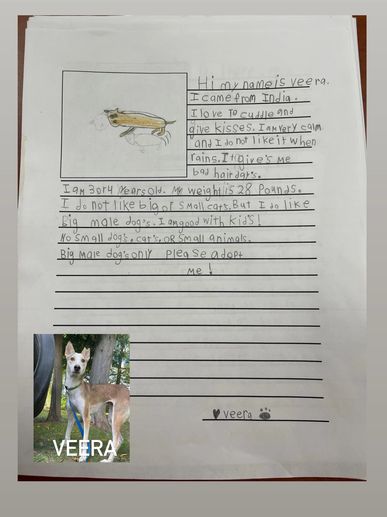 Hi my name is veera.
I came from India.
I love to cuddle and
give kisses. I am very calm
and I do not like it when
rains. It give's me
bad hairday's.
I am 3 or 4 years old. My weight is 28 pounds.
I do not like big or small cats. But I do like
big male dog's. I am good with kid's!
No small dog's, cat's, or small animals.
Big male dog's only please adopt
me!
♥ veera
VEERA